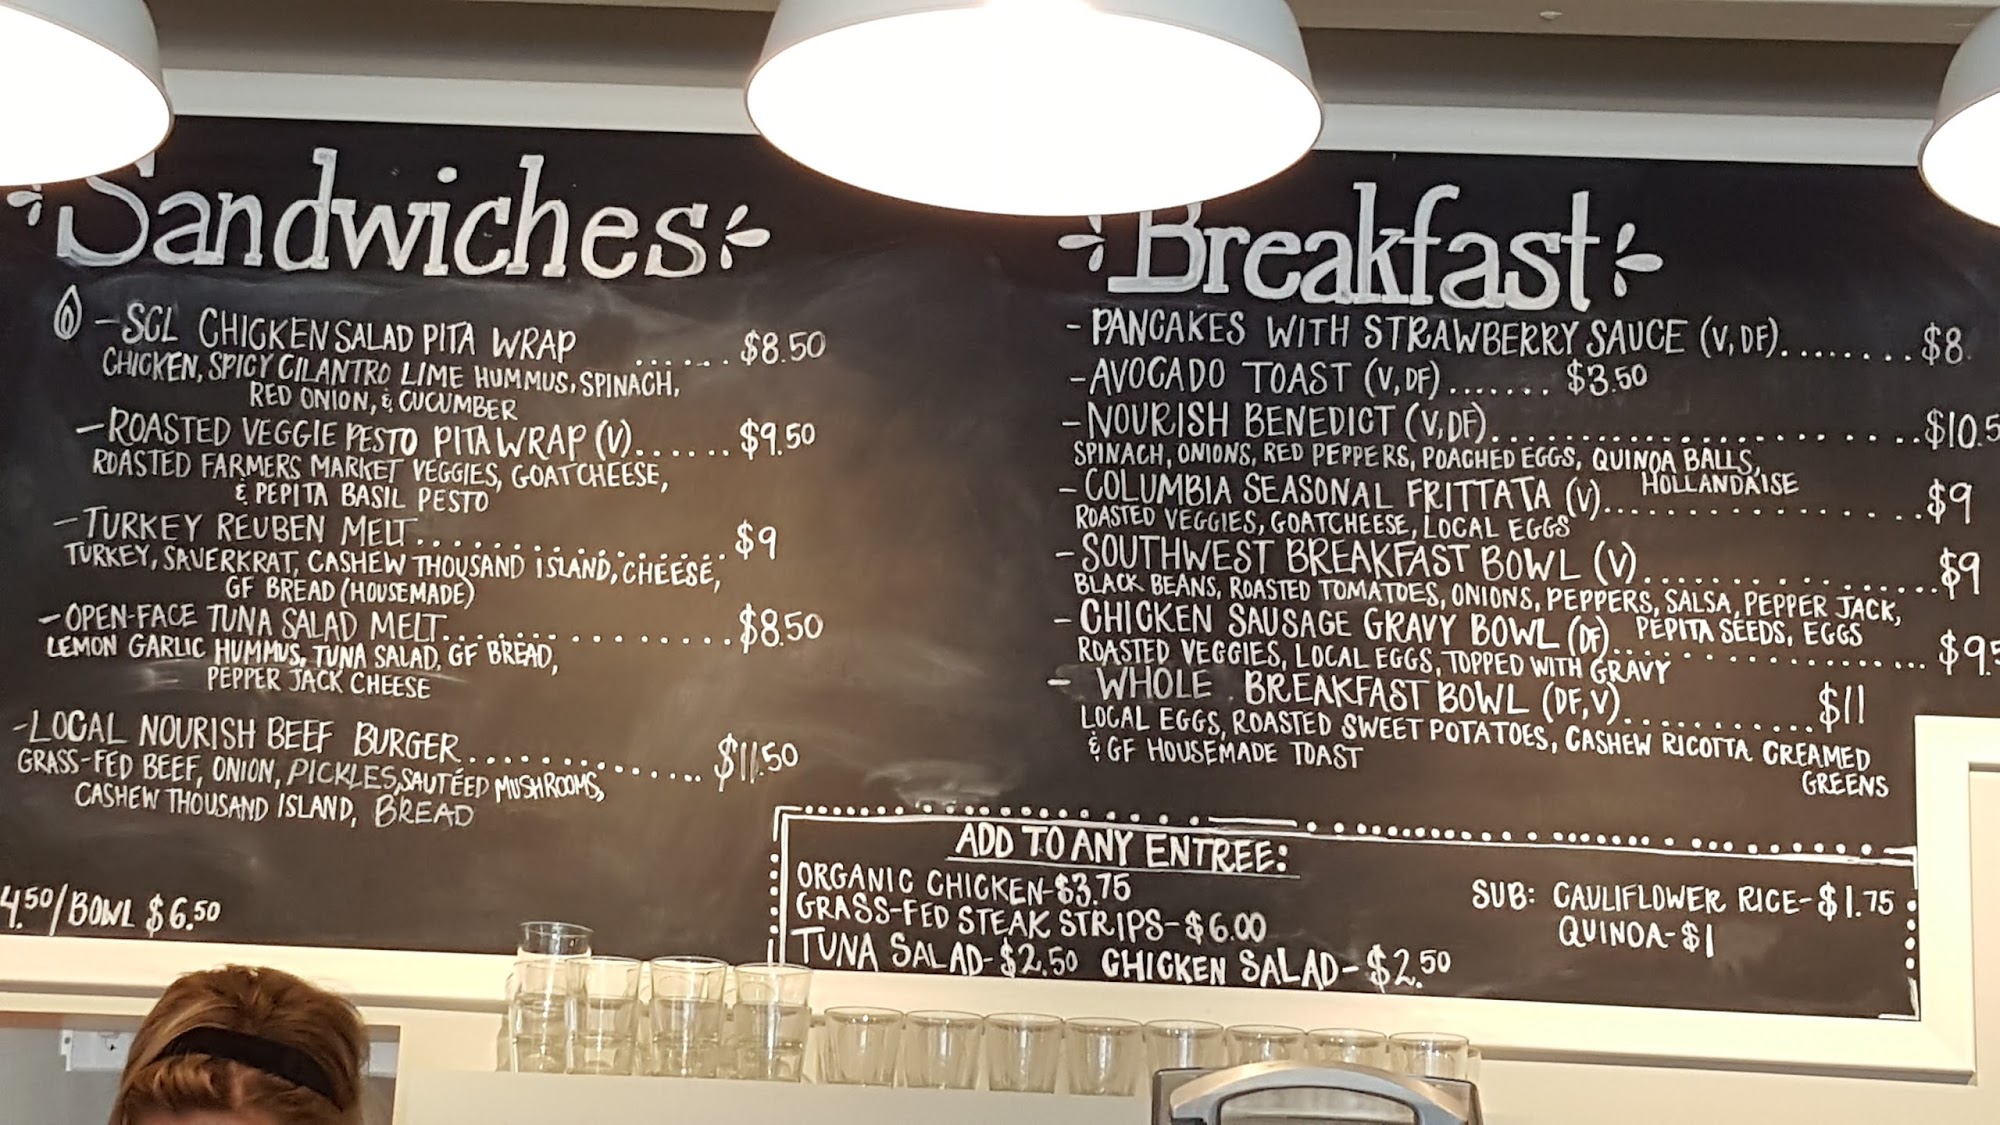 Sandwiches
- SCL CHICKEN SALAD PITA WRAP ...... $8.50
CHICKEN, SPICY CILANTRO LIME HUMMUS, SPINACH,
RED ONION, & CUCUMBER
- ROASTED VEGGIE PESTO PITA WRAP (V)....... $9.50
ROASTED FARMERS MARKET VEGGIES, GOATCHEESE,
& PEPITA BASIL PESTO
- TURKEY REUBEN MELT.................. $9
TURKEY, SAUERKRAT, CASHEW THOUSAND ISLAND, CHEESE,
GF BREAD (HOUSEMADE)
- OPEN-FACE TUNA SALAD MELT................ $8.50
LEMON GARLIC HUMMUS, TUNA SALAD, GF BREAD,
PEPPER JACK CHEESE
- LOCAL NOURISH BEEF BURGER................ $11.50
GRASS-FED BEEF, ONION, PICKLES, SAUTÉED MUSHROOMS,
CASHEW THOUSAND ISLAND, BREAD
4.50/BOWL $6.50
Breakfast
- PANCAKES WITH STRAWBERRY SAUCE (V, DF)........ $8
- AVOCADO TOAST (V, DF)....... $3.50
- NOURISH BENEDICT (V, DF)........................ $10.5
SPINACH, ONIONS, RED PEPPERS, POACHED EGGS, QUINOA BALLS,
HOLLANDAISE
- COLUMBIA SEASONAL FRITTATA (V).................. $9
ROASTED VEGGIES, GOATCHEESE, LOCAL EGGS
- SOUTHWEST BREAKFAST BOWL (V)................ $9
BLACK BEANS, ROASTED TOMATOES, ONIONS, PEPPERS, SALSA, PEPPER JACK,
PEPITA SEEDS, EGGS
- CHICKEN SAUSAGE GRAVY BOWL (DF)................. $9.5
ROASTED VEGGIES, LOCAL EGGS, TOPPED WITH GRAVY
- WHOLE BREAKFAST BOWL (DF, V)........... $11
LOCAL EGGS, ROASTED SWEET POTATOES, CASHEW RICOTTA CREAMED
GREENS
& GF HOUSEMADE TOAST
ADD TO ANY ENTREE:
ORGANIC CHICKEN-$3.75
GRASS-FED STEAK STRIPS-$6.00
TUNA SALAD-$2.50 CHICKEN SALAD-$2.50
SUB: CAULIFLOWER RICE-$1.75
QUINOA-$1